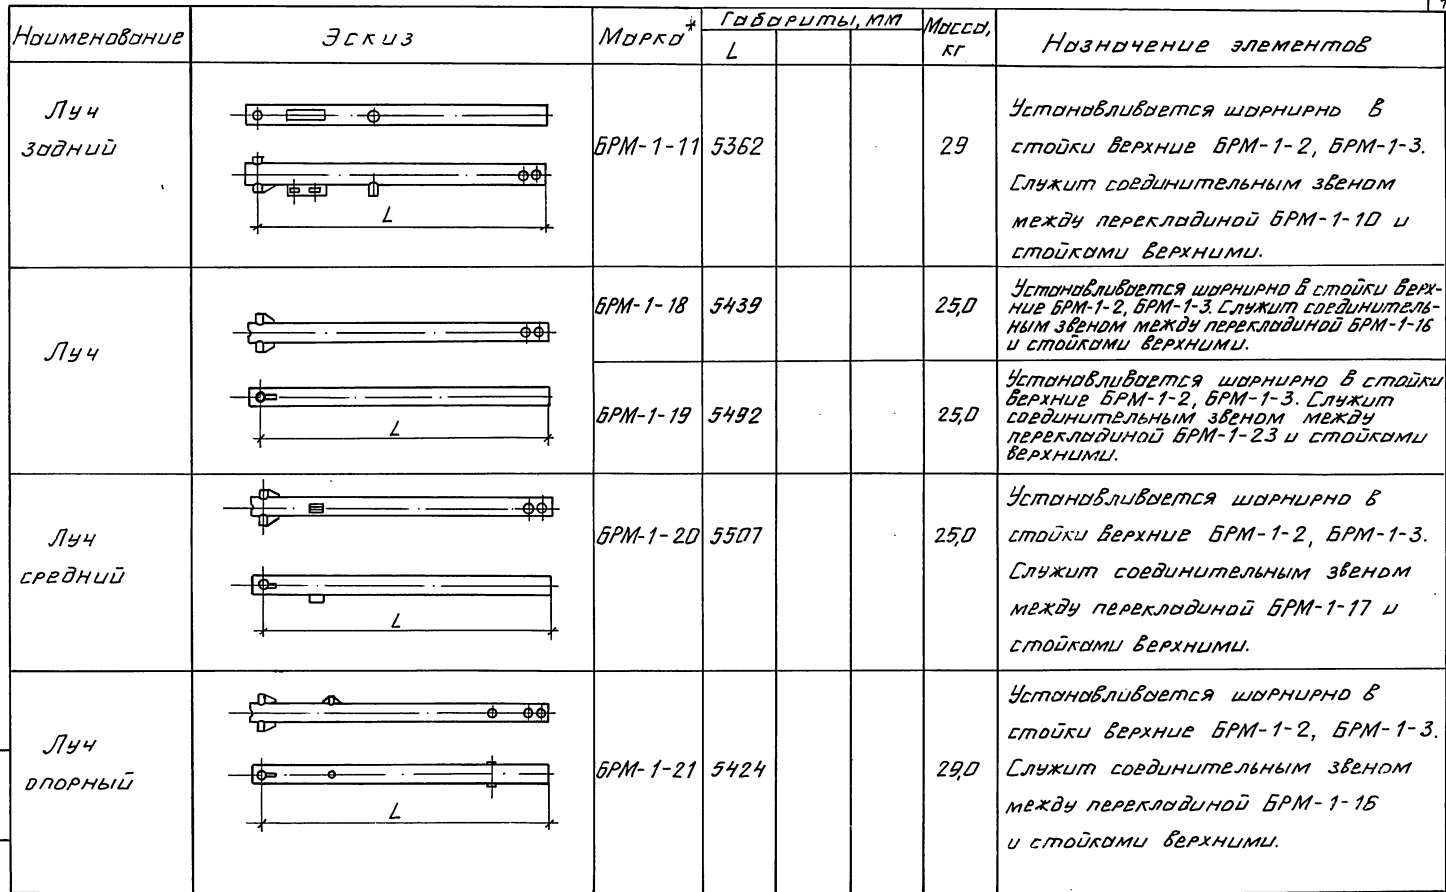 Наименование
Эскиз
Марка*
Габариты, мм
L
Масса,
кг
Назначение элементов
Луч
задний
L
БРМ-1-11
5362
29
Устанавливается шарнирно в
стойки верхние БРМ-1-2, БРМ-1-3.
Служит соединительным звеном
между перекладиной БРМ-1-10 и
стойками верхними.
Луч
L
БРМ-1-18
5439
25,0
Устанавливается шарнирно в стойки верх-
ние БРМ-1-2, БРМ-1-3. Служит соединитель-
ным звеном между перекладиной БРМ-1-16
и стойками верхними.
БРМ-1-19
5492
25,0
Устанавливается шарнирно в стойки
верхние БРМ-1-2, БРМ-1-3. Служит
соединительным звеном между
перекладиной БРМ-1-23 и стойками
верхними.
Луч
средний
L
БРМ-1-20
5507
25,0
Устанавливается шарнирно в
стойки верхние БРМ-1-2, БРМ-1-3.
Служит соединительным звеном
между перекладиной БРМ-1-17 и
стойками верхними.
Луч
опорный
L
БРМ-1-21
5424
29,0
Устанавливается шарнирно в
стойки верхние БРМ-1-2, БРМ-1-3.
Служит соединительным звеном
между перекладиной БРМ-1-16
и стойками верхними.